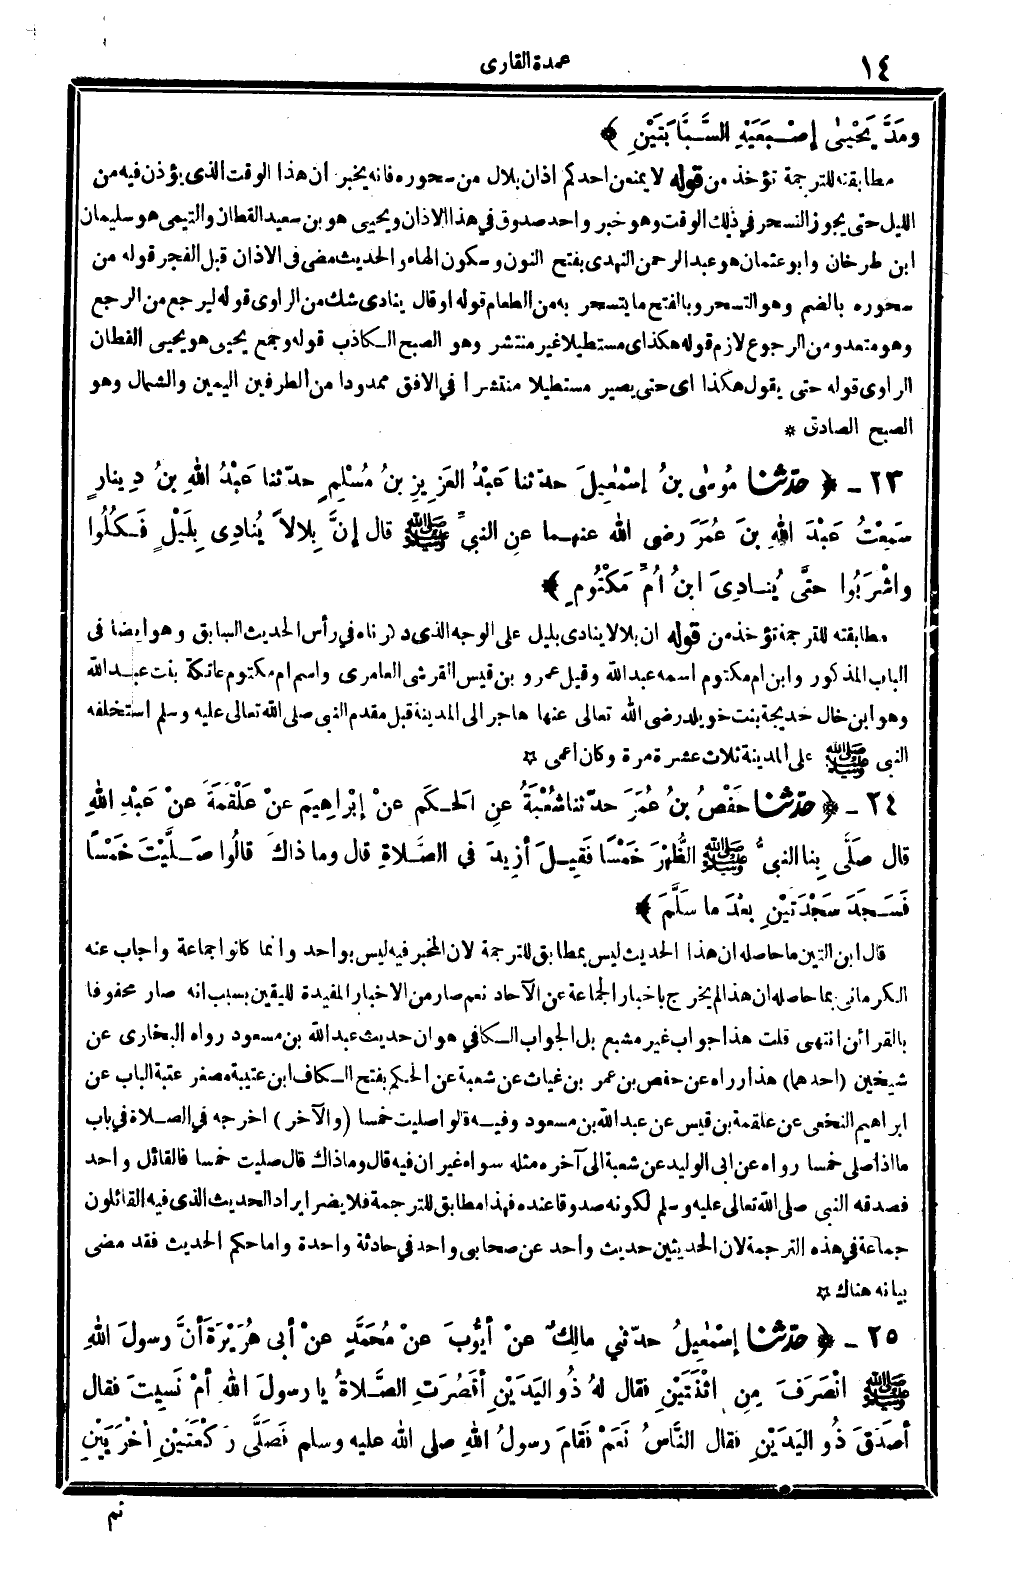 ١٤
عمدة القارى
ومَدَّ يَحْيىٰ إصْبَعَيْهِ السَّبَّابَتَيْنِ ﴾
مطابقته للترجمة تؤخذ من قوله لا يمنعن احدكم اذان بلال من سحوره فانه يخبر ان هذا الوقت الذى يؤذن فيه من
الليل حتى يجوز التسحر في ذلك الوقت وهو خبر واحد صدوق في هذا الاذان ويحيى هو بن سعيد القطان والتيمى هو سليمان
ابن طرخان وابو عثمان هو عبد الرحمن النهدى بفتح النون وسكون الهاء والحديث مضى فى الاذان قبل الفجر قوله من
سحوره بالضم وهو التسحر وبالفتح ما يتسحر به من الطعام قوله او قال ينادى شك من الراوى قوله ليرجع من الرجع
وهو متعد ومن الرجوع لازم قوله هكذا اى مستطيلا غير منتشر وهو الصبح الكاذب قوله وجمع يحيى هو يحيى القطان
الراوى قوله حتى يقول هكذا اى حتى يصير مستطيلا منتشرا في الافق ممدودا من الطرفين اليمين والشمال وهو
الصبح الصادق *
٢٣ ـ ﴿ حدّثنا مُوسٰى بنُ إسْمٰعِيلَ حدّثنا عَبْدُ العَزِيزِ بنُ مُسْلِمٍ حدّثنا عَبْدُ اللهِ بنُ دِينارٍ
سَمِعْتُ عَبْدَ اللهِ بنَ عُمَرَ رضى الله عنهما عنِ النبيِّ ﷺ قال إنَّ بِلالاً يُنادِى بِلَيْلٍ فَكُلُوا
واشْرَبُوا حتَّى يُنادِىَ ابنُ أُمِّ مَكْتُومٍ ﴾
مطابقته للترجمة تؤخذ من قوله ان بلالا ينادى بليل على الوجه الذى ذكرناه في رأس الحديث السابق وهو ايضا فى
الباب المذكور وابن ام مكتوم اسمه عبد الله وقيل عمرو بن قيس القرشى العامرى واسم ام مكتوم عاتكة بنت عبد الله
وهو ابن خال خديجة بنت خويلد رضى الله تعالى عنها هاجر الى المدينة قبل مقدم النبى صلى الله تعالى عليه وسلم استخلفه
النبى ﷺ على المدينة ثلاث عشرة مرة وكان أعمى ☆
٢٤ ـ ﴿ حدّثنا حَفْصُ بنُ عُمَرَ حدّثنا شُعْبَةُ عنِ الحَكَمِ عنْ إبْراهِيمَ عنْ عَلْقَمَةَ عنْ عَبْدِ اللهِ
قال صَلَّى بِنا النبيُّ ﷺ الظُّهْرَ خَمْسًا فَقِيلَ أزِيدَ في الصَّلاةِ قال وما ذاكَ قالُوا صَلَّيْتَ خَمْسًا
فَسَجَدَ سَجْدَتَيْنِ بعْدَ ما سَلَّمَ ﴾
قال ابن التين ما حاصله ان هذا الحديث ليس بمطابق للترجمة لان المخبر فيه ليس بواحد وانما كانوا جماعة واجاب عنه
الكرمانى بما حاصله ان هذا لم يخرج باخبار الجماعة عن الآحاد نعم صار من الاخبار المفيدة لليقين بسبب انه صار محفوفا
بالقرائن انتهى قلت هذا جواب غير مشبع بل الجواب الكافي هو ان حديث عبد الله بن مسعود رواه البخارى عن
شيخين (احدهما) هذا رواه عن حفص بن عمر بن غياث عن شعبة عن الحكم بفتح الكاف ابن عتيبة مصغر عتبة الباب عن
ابراهيم النخعى عن علقمة بن قيس عن عبد الله بن مسعود وفيه قالوا صليت خمسا (والآخر) اخرجه في الصلاة في باب
ما اذا صلى خمسا رواه عن ابى الوليد عن شعبة الى آخره مثله سواء غير ان فيه قال وما ذاك قال صليت خمسا فالقائل واحد
فصدقه النبى صلى الله تعالى عليه وسلم لكونه صدوقا عنده فهذا مطابق للترجمة فلا يضر ايراد الحديث الذى فيه القائلون
جماعة في هذه الترجمة لان الحديثين حديث واحد عن صحابى واحد في حادثة واحدة واما حكم الحديث فقد مضى
بيانه هناك ☆
٢٥ ـ ﴿ حدّثنا إسْمٰعِيلُ حدّثني مالِكٌ عنْ أيُّوبَ عنْ مُحَمَّدٍ عنْ أبى هُرَيْرَةَ أنَّ رسولَ اللهِ
ﷺ انْصَرَفَ مِنِ اثْنَتَيْنِ فقال لهُ ذُو اليَدَيْنِ أقَصُرَتِ الصَّلاةُ يا رسولَ اللهِ أمْ نَسِيتَ فقال
أصَدَقَ ذُو اليَدَيْنِ فقال النَّاسُ نَعَمْ فَقامَ رسولُ اللهِ صلى الله عليه وسلم فَصَلَّى رَكْعَتَيْنِ أُخْرَيَيْنِ
ثم